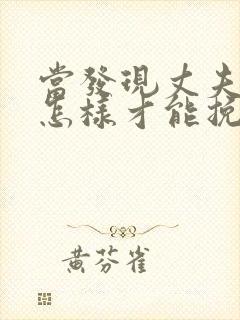 當發現丈夫
怎樣才能挽
黃芬雀